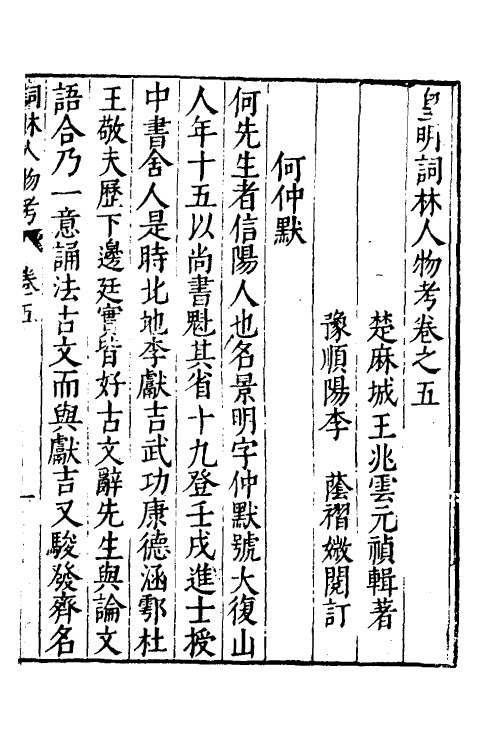 皇明詞林人物考卷之五
楚麻城王兆雲元禎輯著
豫順陽李　蔭襲媺閱訂
何仲默
何先生者信陽人也名景明字仲默號大復山
人年十五以尚書魁其省十九登壬戌進士授
中書舍人是時北地李獻吉武功康德涵鄠杜
王敬夫歷下邊廷實皆好古文辭先生與論文
語合乃一意誦法古文而與獻吉又駿發齊名
詞林人物考　卷五　一